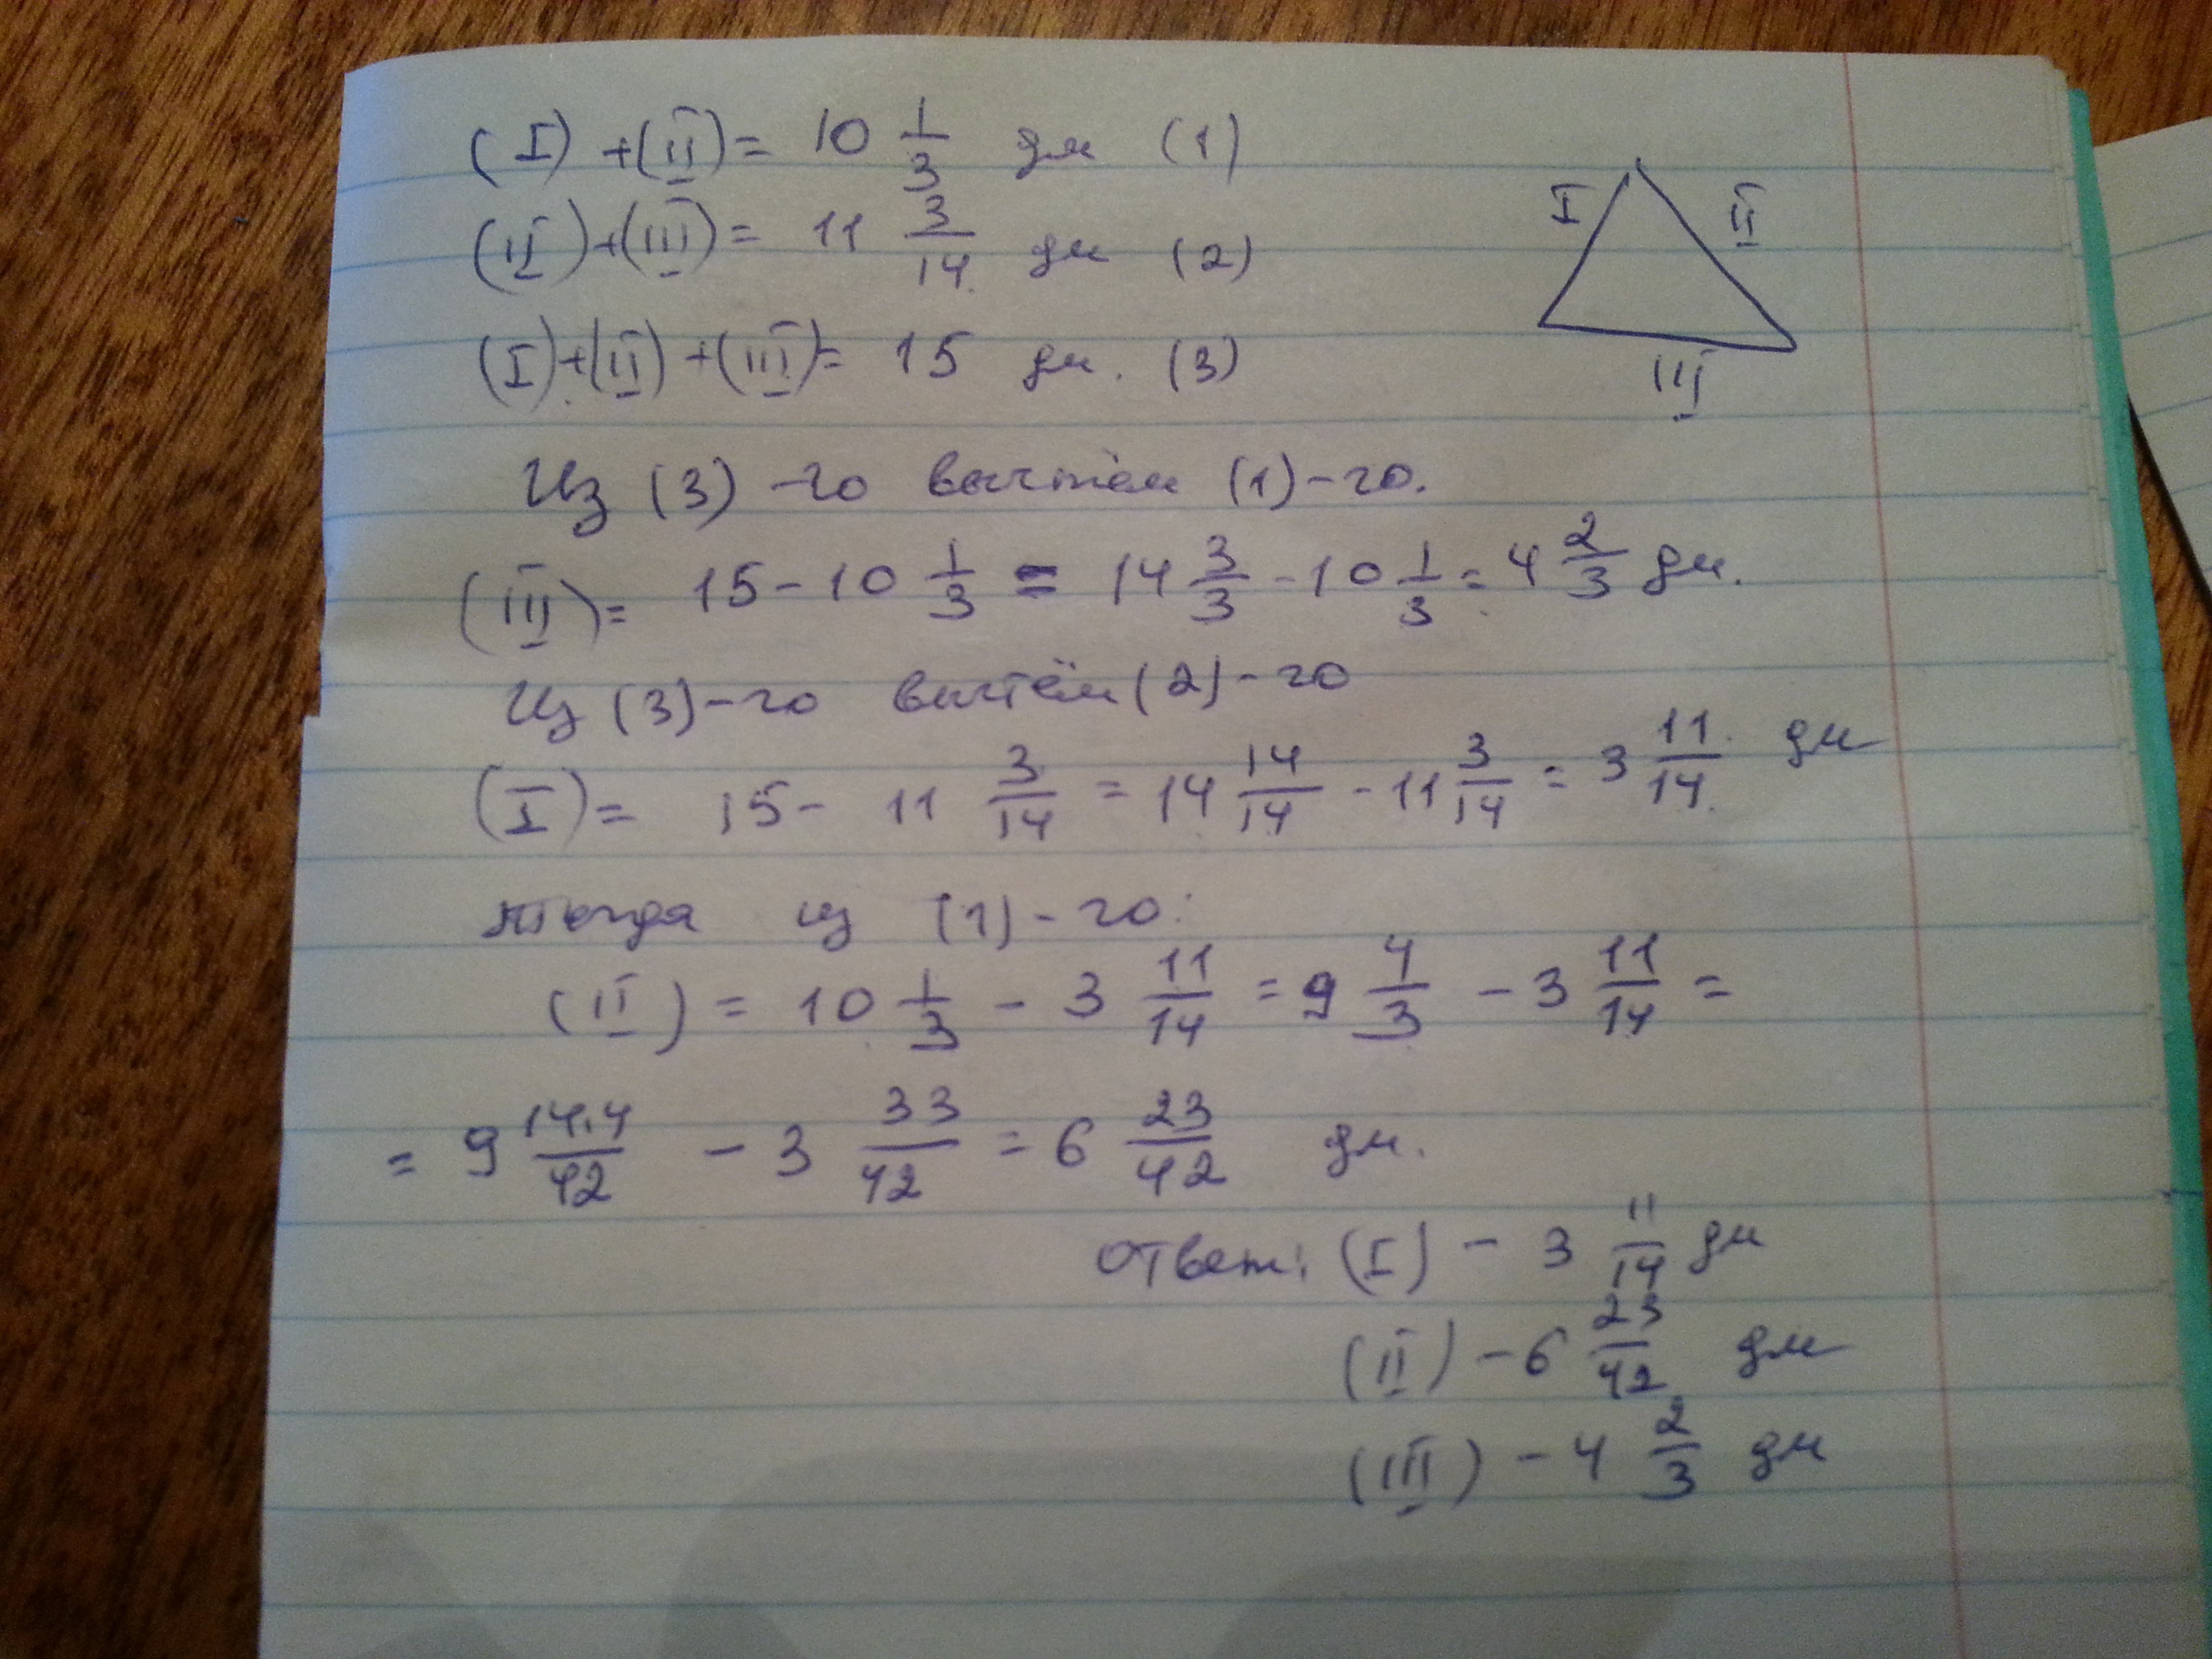 (I) + (II) = 10 1/3 дм (1)
(II) + (III) = 11 3/14 дм (2)
(I) + (II) + (III) = 15 дм. (3)
I
II
III
Из (3) -го вычтем (1) - го.
(III) = 15 - 10 1/3 = 14 3/3 - 10 1/3 = 4 2/3 дм.
Из (3) - го вычтём (2) - го
(I) = 15 - 11 3/14 = 14 14/14 - 11 3/14 = 3 11/14 дм
тогда из (1) - го:
(II) = 10 1/3 - 3 11/14 = 9 4/3 - 3 11/14 =
= 9 14.4/42 - 3 33/42 = 6 23/42 дм.
Ответ: (I) - 3 11/14 дм
(II) - 6 23/42 дм
(III) - 4 2/3 дм